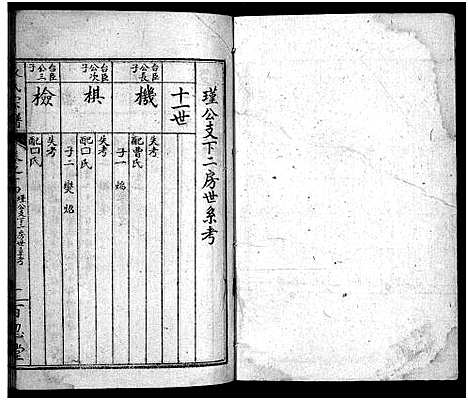 瑾公支下二房世系考
十一世
台臣公長子
機
失考
配曹氏
子一 焰
台臣公次子
棋
失考
配口氏
子二 燮 焰
台臣公三子
檢
失考
配口氏
瑾公支下二房世系考
百忍堂